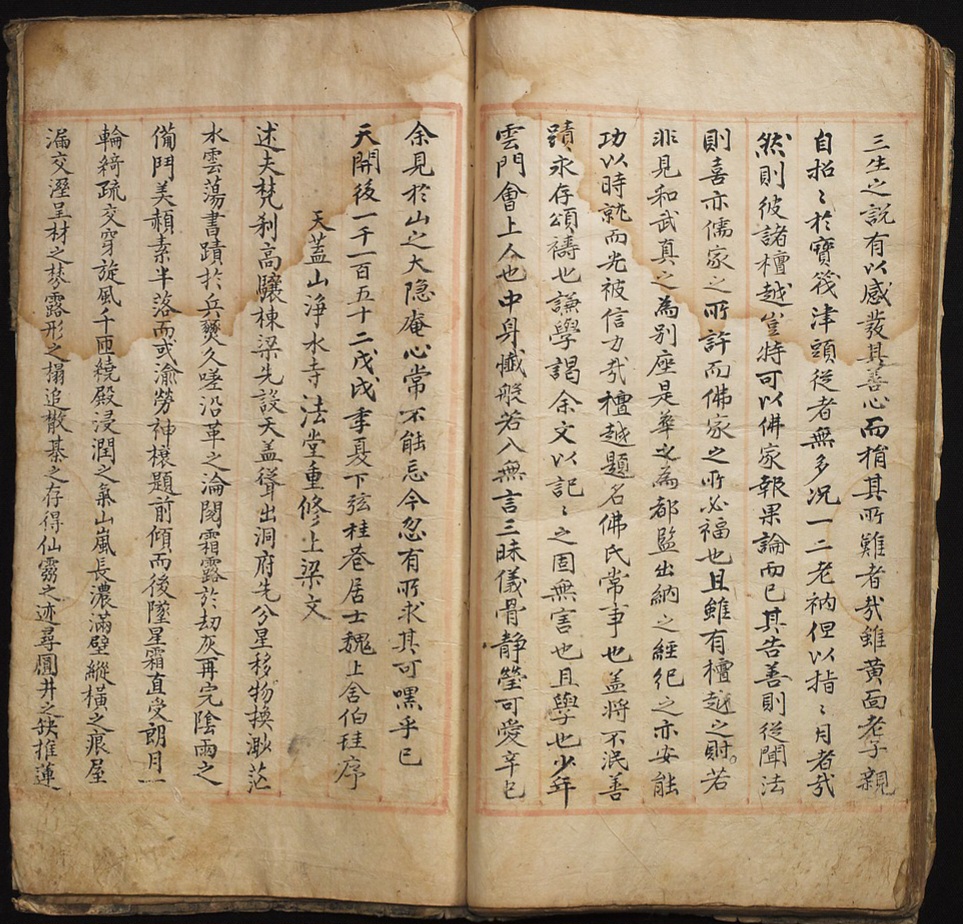 三生之説有以感發其善心而捐其所難者哉雖黄面老子親
自招〻於寶筏津頭從者無多况一二老衲但以指〻月者哉
然則彼諸檀越豈特可以佛家報果論而已其告善則從聞法
則喜亦儒家之所許而佛家之所必福也且雖有檀越之財若
非見和武真之為别座是華之為都監出納之經紀之亦安能
功以時就而光被信力哉檀越題名佛氏常事也盖將不泯善
蹟永存頌禱也謙學謁余文以記〻之固無害也且學也少年
雲門會上人也中身懺般若入無言三昧儀骨静瑩可愛辛巳
余見於山之大隐庵心常不能忘今忍有所求其可嘿乎已
天開後一千一百五十二戊戌季夏下弦桂巷居士魏上舍伯珪序
天蓋山浄水寺法堂重修上梁文
述夫梵刹高驤棟梁先設天盖聳出洞府先分星移物換渺茫
水雲蕩書蹟於兵燹久嗟沿革之淪閿霜露於劫灰再完陰雨之
備鬥美赬素半落而或渝勞神榱題前傾而後墜星霜直受朗月一
輪綺疏交穿旋風千匝繞殿浸潤之氣山嵐長濃滿壁縱横之痕屋
漏交溼呈材之棼露形之榻追散棊之存得仙雾之迹尋圓井之缺推蓮